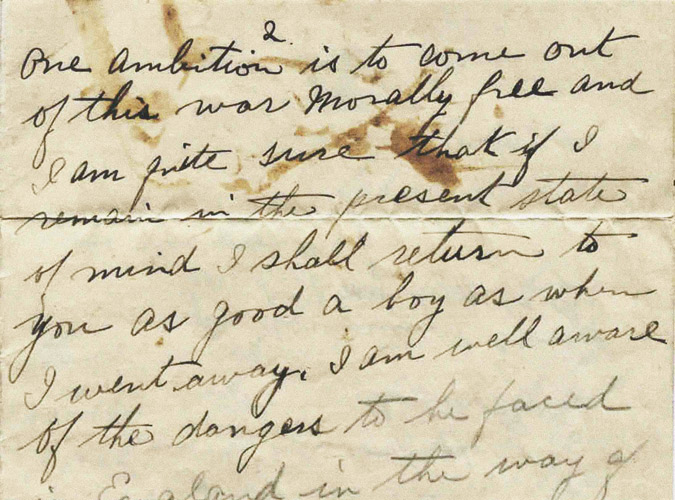 2
One ambition is to come out
of this war Morally free and
I am quite sure that if I
remain in the present state
of mind I shall return to
you as good a boy as when
I went away. I am well aware
of the dangers to be faced
in England in the way of